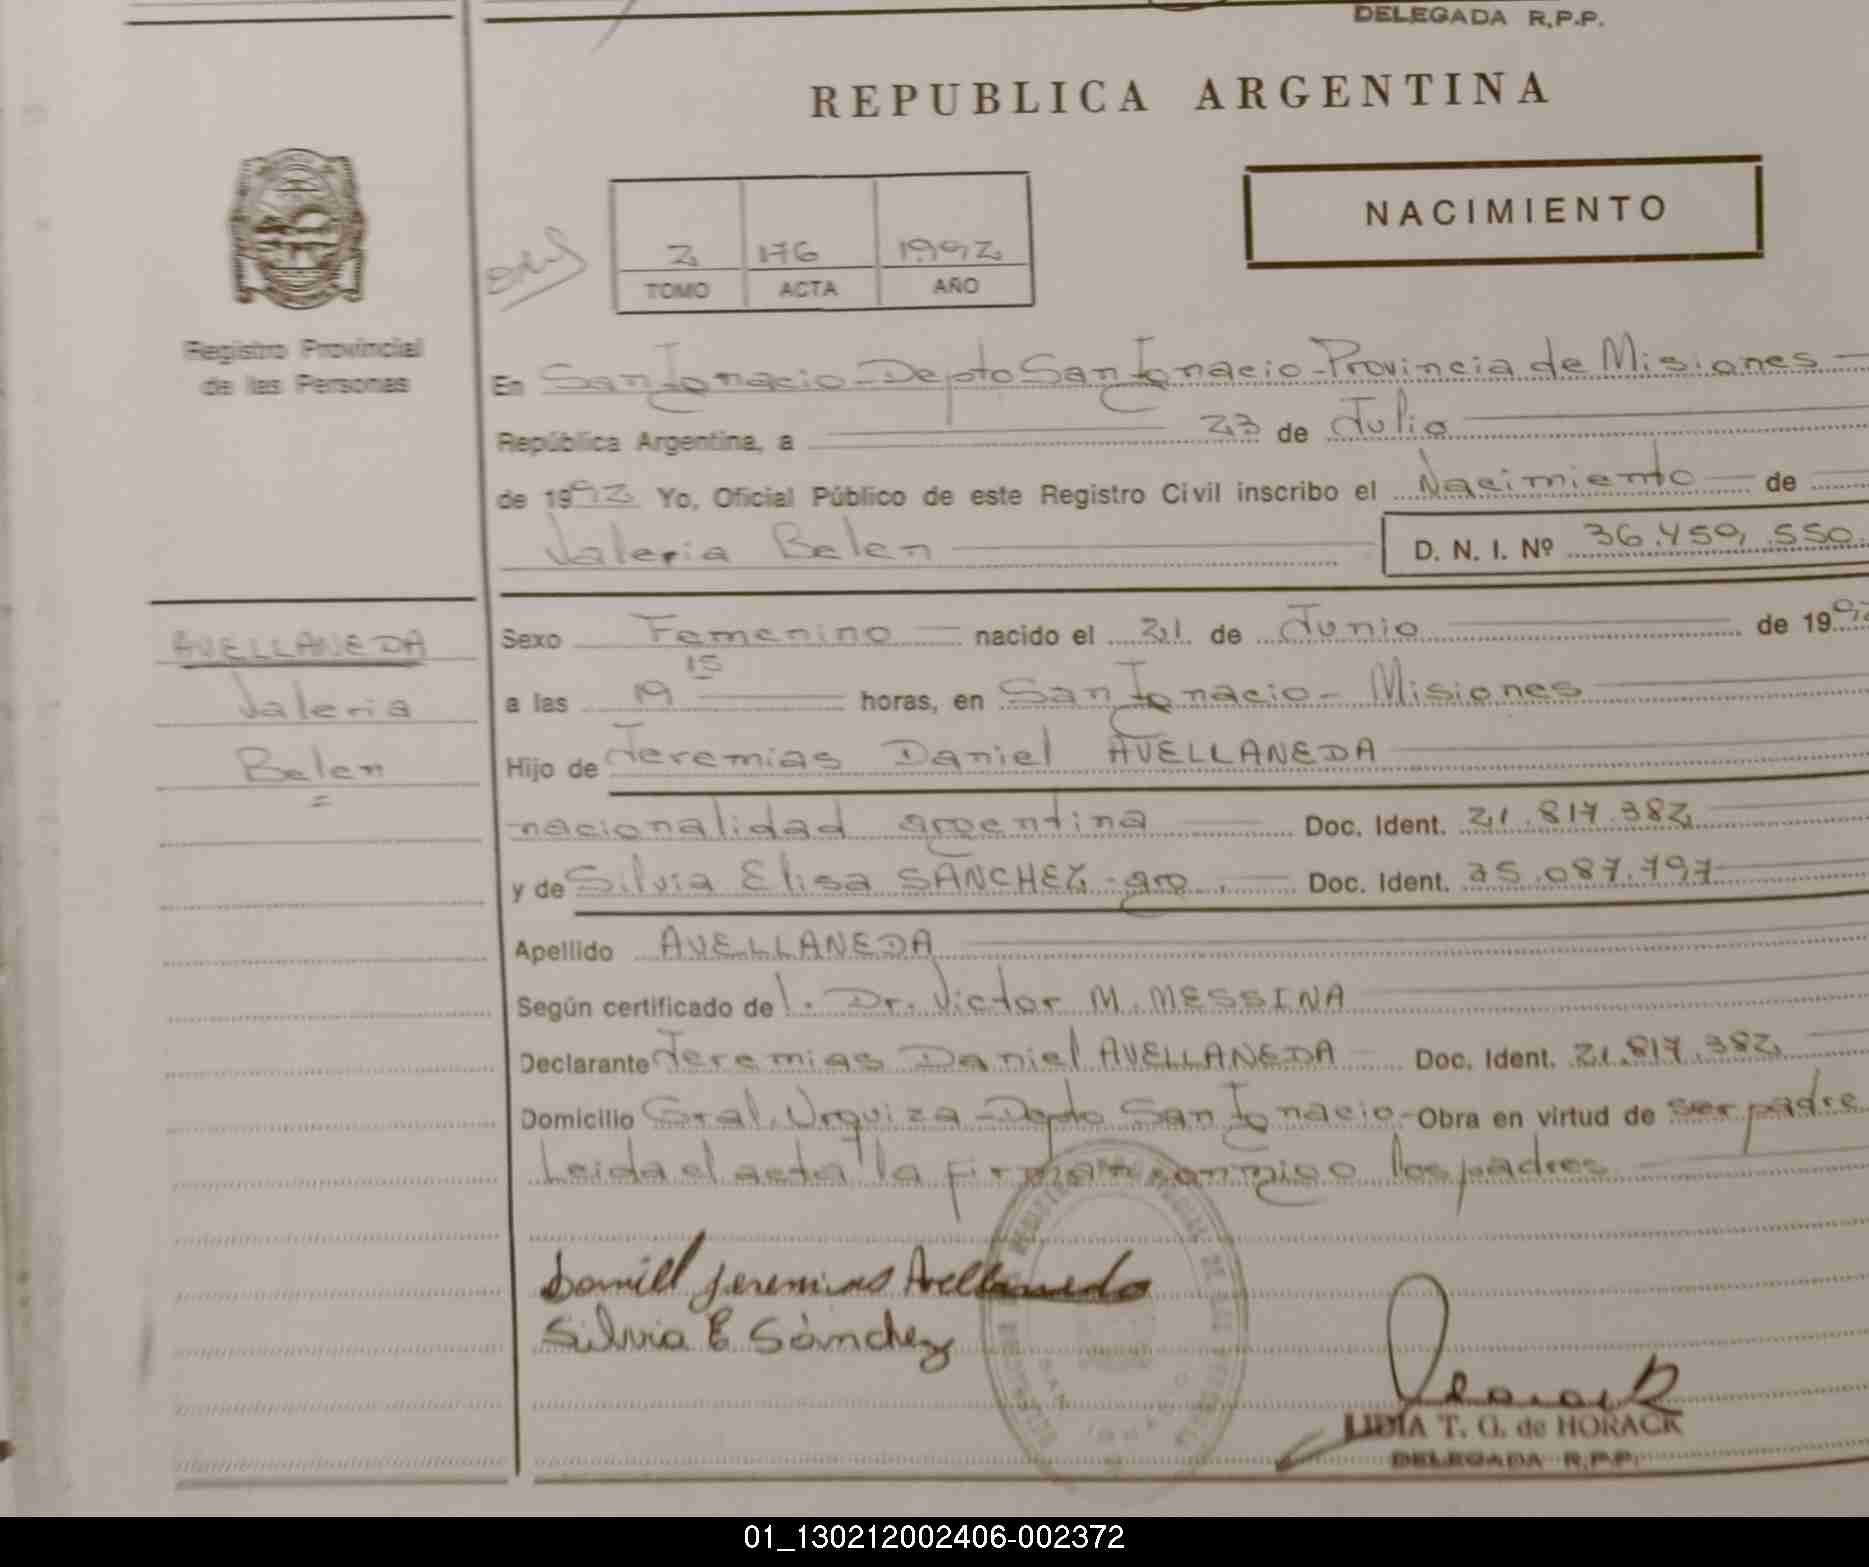 DELEGADA R.P.P.
REPUBLICA ARGENTINA
NACIMIENTO
2 176 1992
TOMO ACTA AÑO
Registro Provincial
de las Personas
En San Ignacio - Depto San Ignacio - Provincia de Misiones
República Argentina, a 23 de Julio
de 1992 Yo, Oficial Público de este Registro Civil inscribo el Nacimiento de
Valeria Belen D. N. I. Nº 36.459.550
AVELLANEDA
Valeria
Belen
Sexo Femenino nacido el 21 de Junio de 199
a las 19 15 horas, en San Ignacio - Misiones
Hijo de Jeremias Daniel AVELLANEDA
nacionalidad argentina Doc. Ident. 21.817.382
y de Silvia Elisa SANCHEZ - arg. Doc. Ident. 25.087.797
Apellido AVELLANEDA
Según certificado de l. Dr. Victor M. MESSINA
Declarante Jeremias Daniel AVELLANEDA Doc. Ident. 21.817.382
Domicilio Gral. Urquiza - Depto San Ignacio - Obra en virtud de ser padre
Leida el acta la firman conmigo los padres
Daniel Jeremias Avellaneda
Silvia E Sánchez
Horack
LIDIA T. G. de HORACK
DELEGADA R.P.P.
01_130212002406-002372